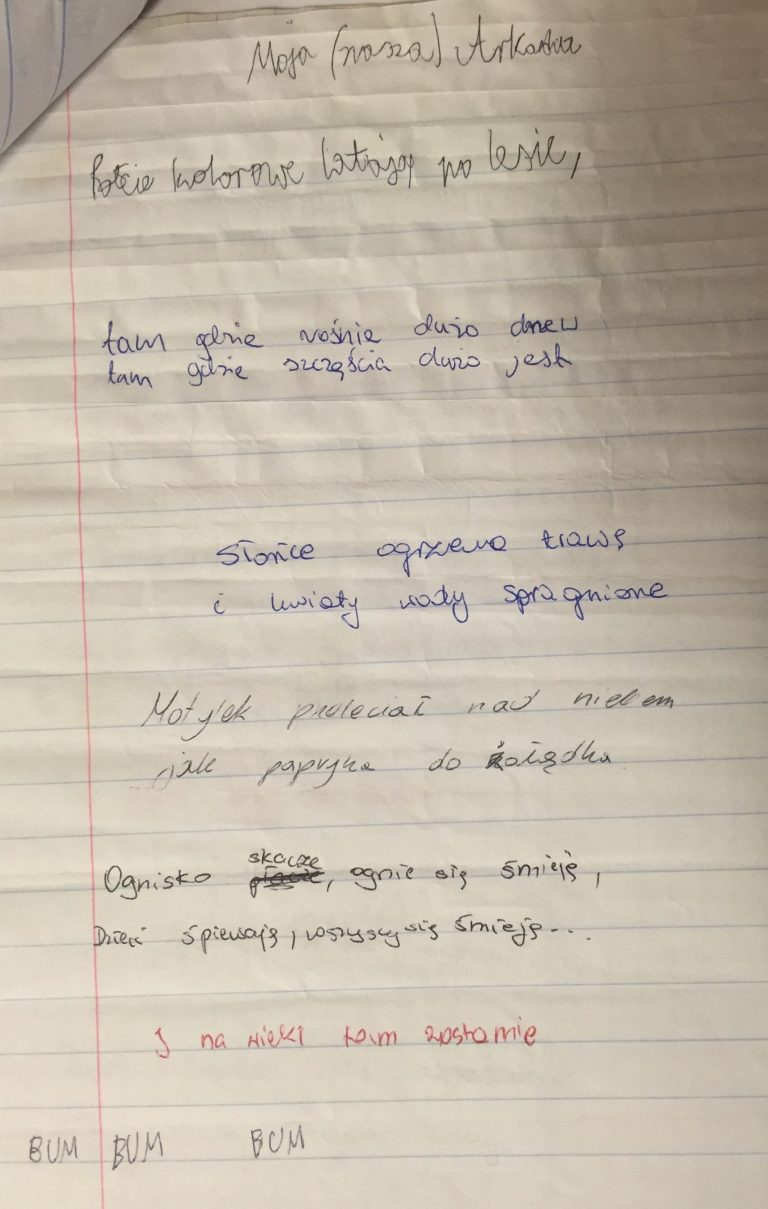 Moja (nasza) Arkadia
kolorowe latają po lesie,
tam gdzie rośnie dużo drzew
tam gdzie szczęścia dużo jest
Słońce ogrzewa trawę
i kwiaty wody spragnione
Motylek przeleciał nad niebem
jak papryka do żołądka
Ognisko skacze, ognie się śmieję,
Dzieci śpiewają, wszyscy się śmieję...
I na wieki tam zostanie
BUM BUM BUM